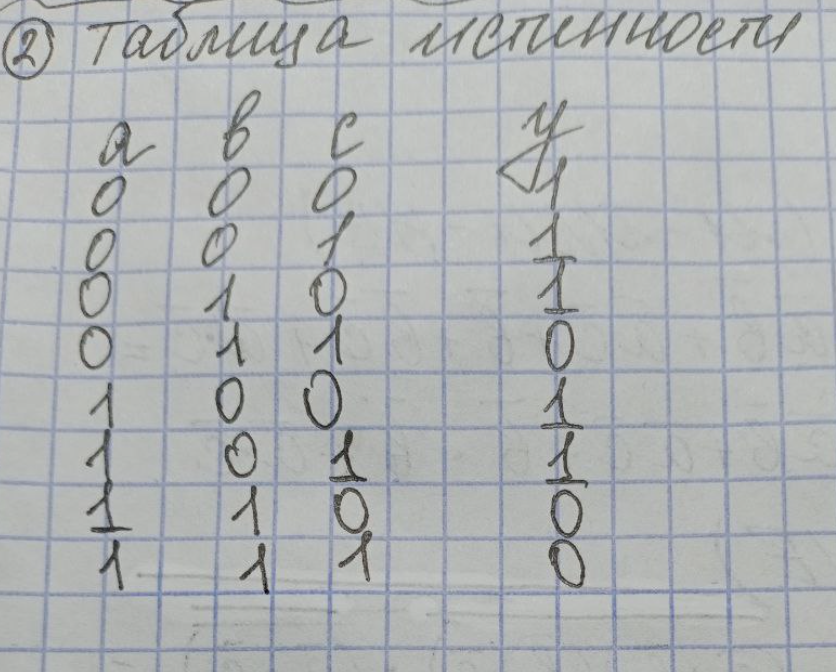 2 Таблица истинности
а в с у
0 0 0 1
0 0 1 1
0 1 0 1
0 1 1 0
1 0 0 1
1 0 1 1
1 1 0 0
1 1 1 0